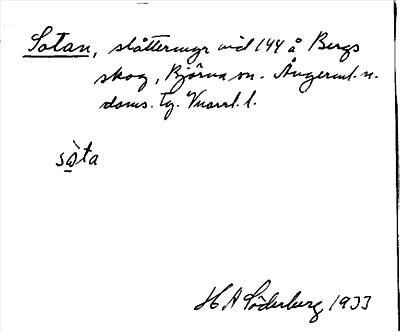 Sotan, slåttermyr vid 144 å Bergs
skog, Björna sn. Ångerml. n.
doms. tg. Vnorrl. l.
sò̱ta
H A Söderberg 1933